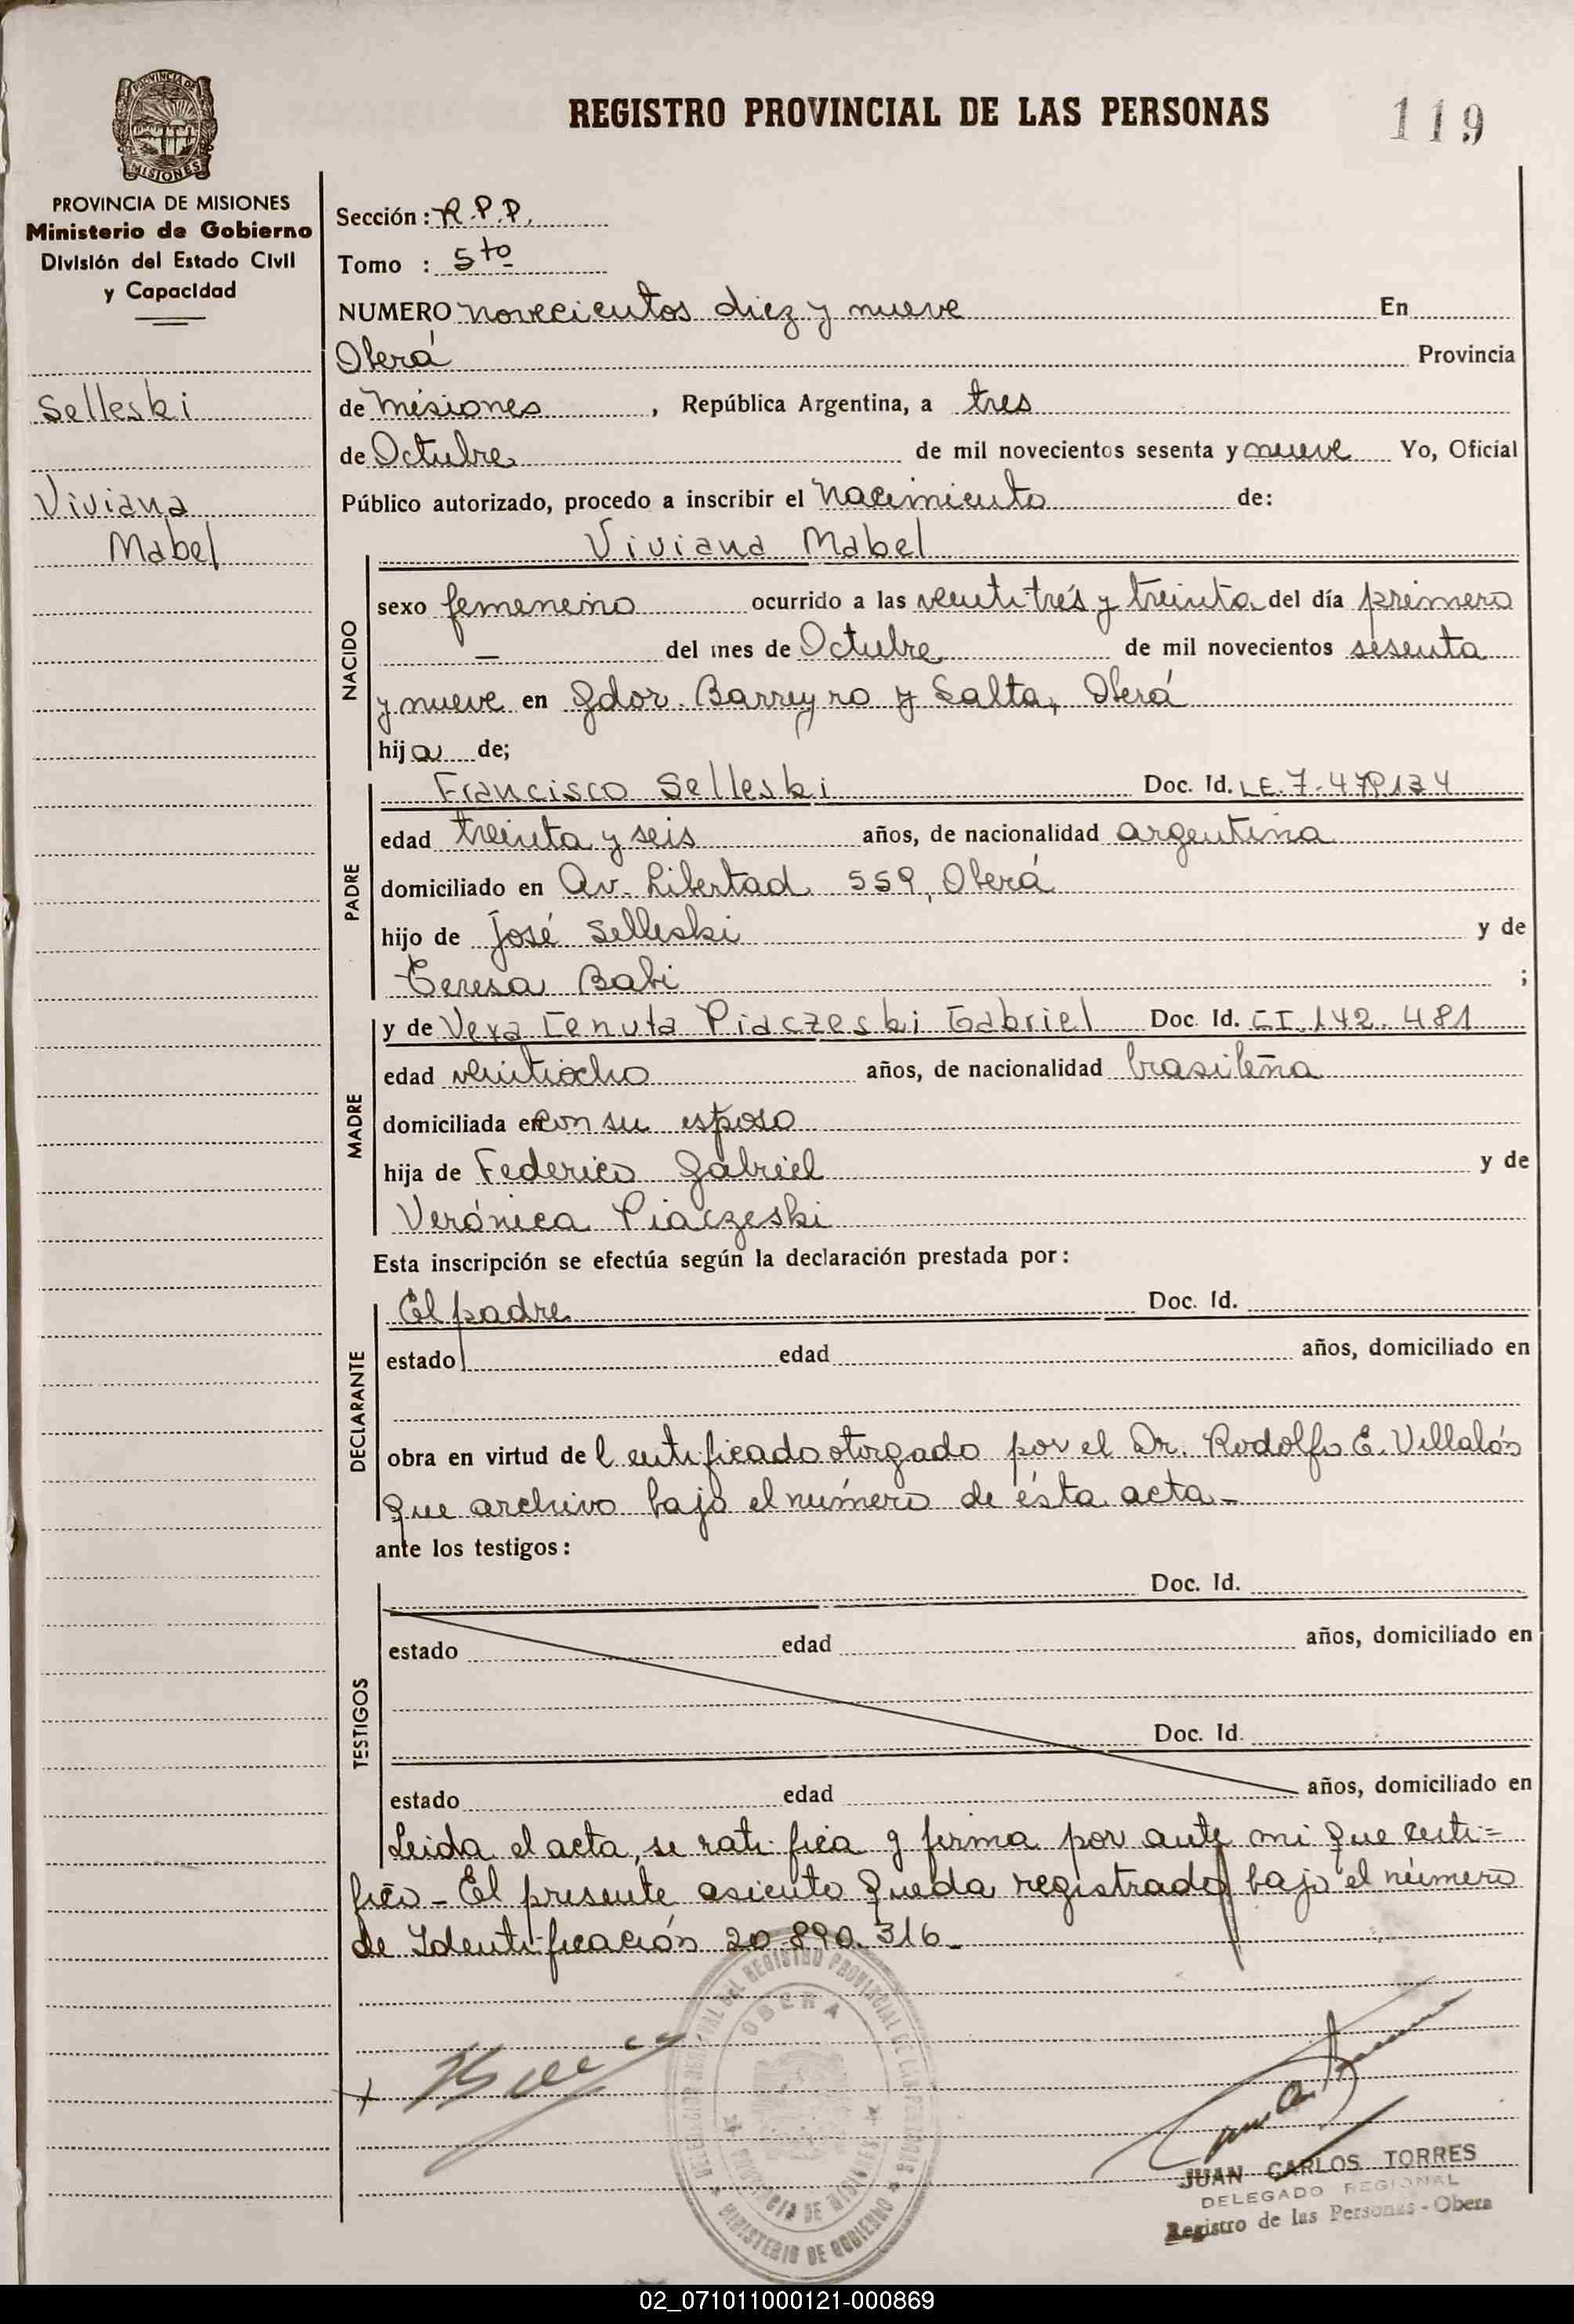 PROVINCIA DE
MISIONES
REGISTRO PROVINCIAL DE LAS PERSONAS
119
PROVINCIA DE MISIONES
Ministerio de Gobierno
División del Estado Civil
y Capacidad
Selleski
Viviana
Mabel
Sección: R.P.P.
Tomo : 5to
NUMERO novecientos diez y nueve En
Oberá Provincia
de Misiones, República Argentina, a tres
de Octubre de mil novecientos sesenta y nueve Yo, Oficial
Público autorizado, procedo a inscribir el nacimiento de:
NACIDO
Viviana Mabel
sexo femenino ocurrido a las veintitrés y treinta del día primero
— del mes de Octubre de mil novecientos sesenta
y nueve en Gdor. Barreyro y Salta, Oberá
hija de;
PADRE
Francisco Selleski Doc. Id. LE. 7.
edad treinta y seis años, de nacionalidad argentina
domiciliado en Av. Libertad 559, Oberá
hijo de José Selleski y de
Teresa Babi ;
MADRE
y de Piaczeski Gabriel Doc. Id. CI. 142.481
edad veintiocho años, de nacionalidad brasileña
domiciliada en con su esposo
hija de Federico Gabriel y de
Verónica Piaczeski
Esta inscripción se efectúa según la declaración prestada por:
DECLARANTE
El padre Doc. Id.
estado edad años, domiciliado en
obra en virtud del certificado otorgado por el Dr. Rodolfo E. Villalón
que archivo bajo el número de ésta acta.-
ante los testigos:
TESTIGOS
Doc. Id.
estado edad años, domiciliado en
Doc. Id.
estado edad años, domiciliado en
Leida el acta, se ratifica y firma por ante mi que certi=
fico - El presente asiento queda registrado bajo el número
de Identificación 20.890.316.-
DEL REGISTRO PROVINCIAL DE LAS PERSONAS
OBERA
PROVINCIA DE MISIONES
MINISTERIO DE GOBIERNO
JUAN CARLOS TORRES
DELEGADO REGIONAL
Registro de las Personas - Obera
02_071011000121-000869